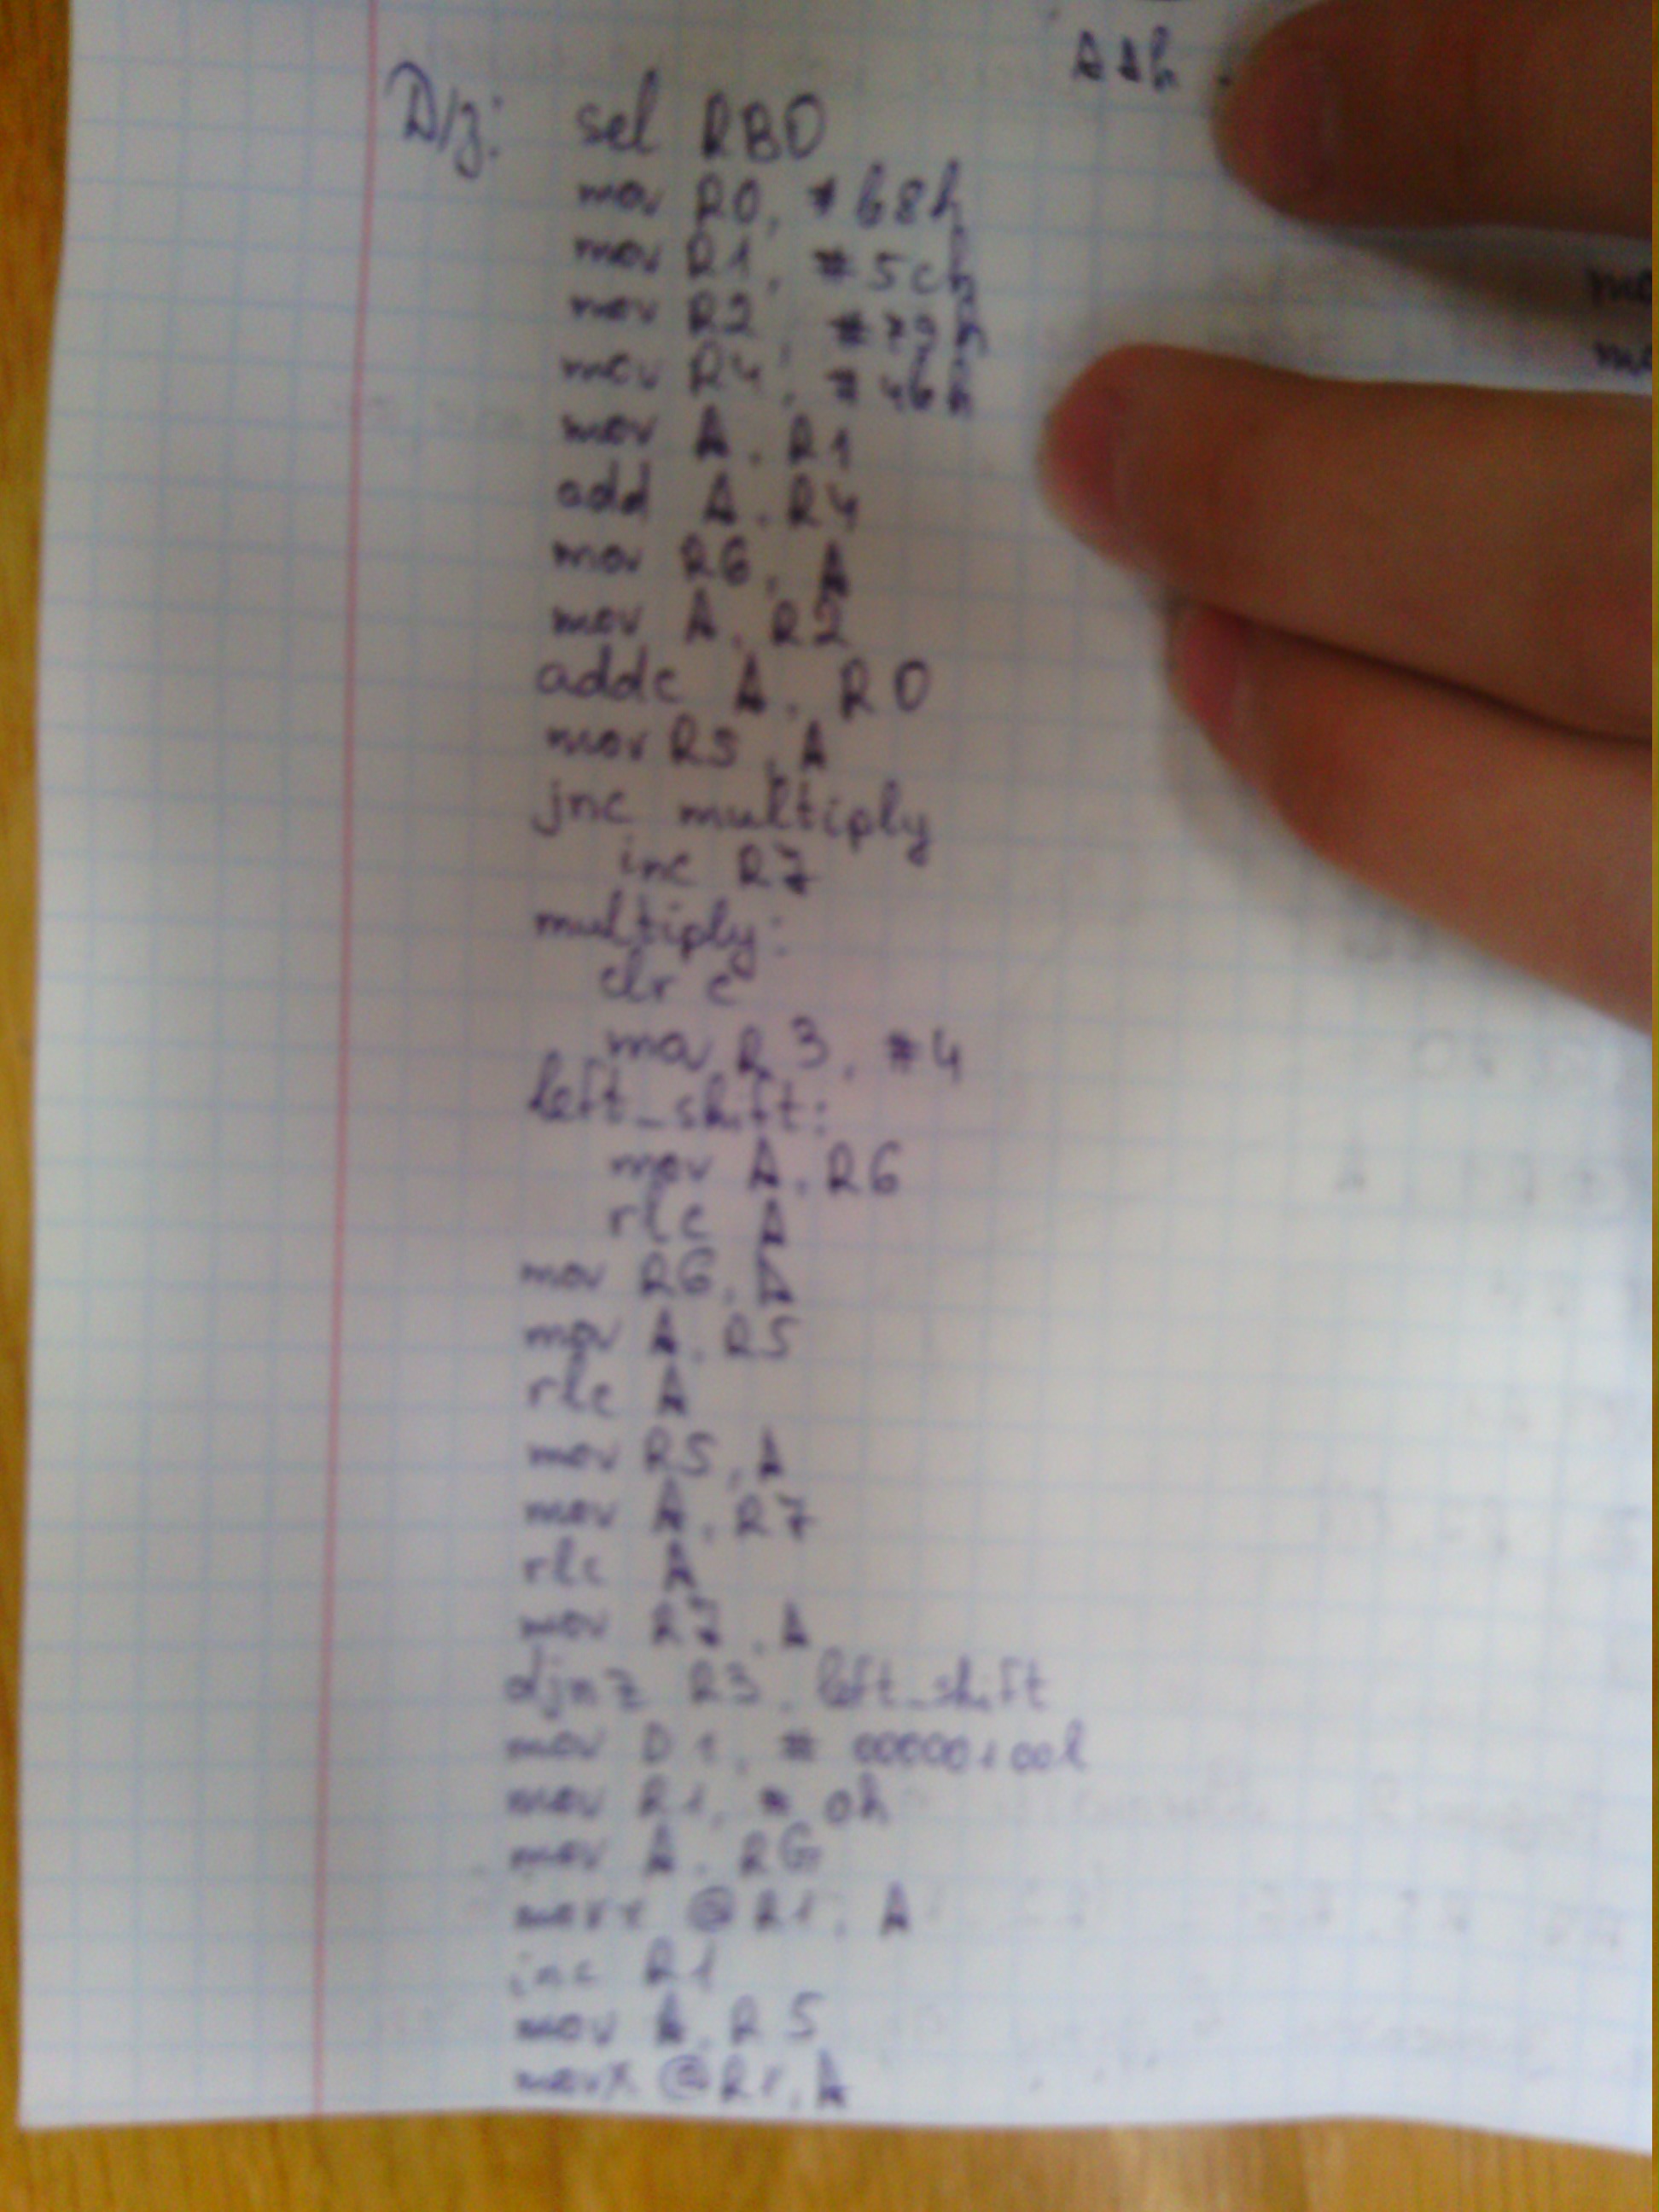 AAh
D/з: sel RB0
mov R0, #68h
mov R1, #5ch
mov R2, #79h
mov R4, #46h
mov A, R1
add A, R4
mov R6, A
mov A, R2
addc A, R0
mov R5, A
jnc multiply
inc R7
multiply:
clr c
mov R3, #4
left_shift:
mov A, R6
rlc A
mov R6, A
mov A, R5
rlc A
mov R5, A
mov A, R7
rlc A
mov R7, A
djnz R3, left_shift
mov P1, #
mov R1, #0h
mov A, R6
movx @R1, A
inc R1
mov A, R5
movx @R1, A